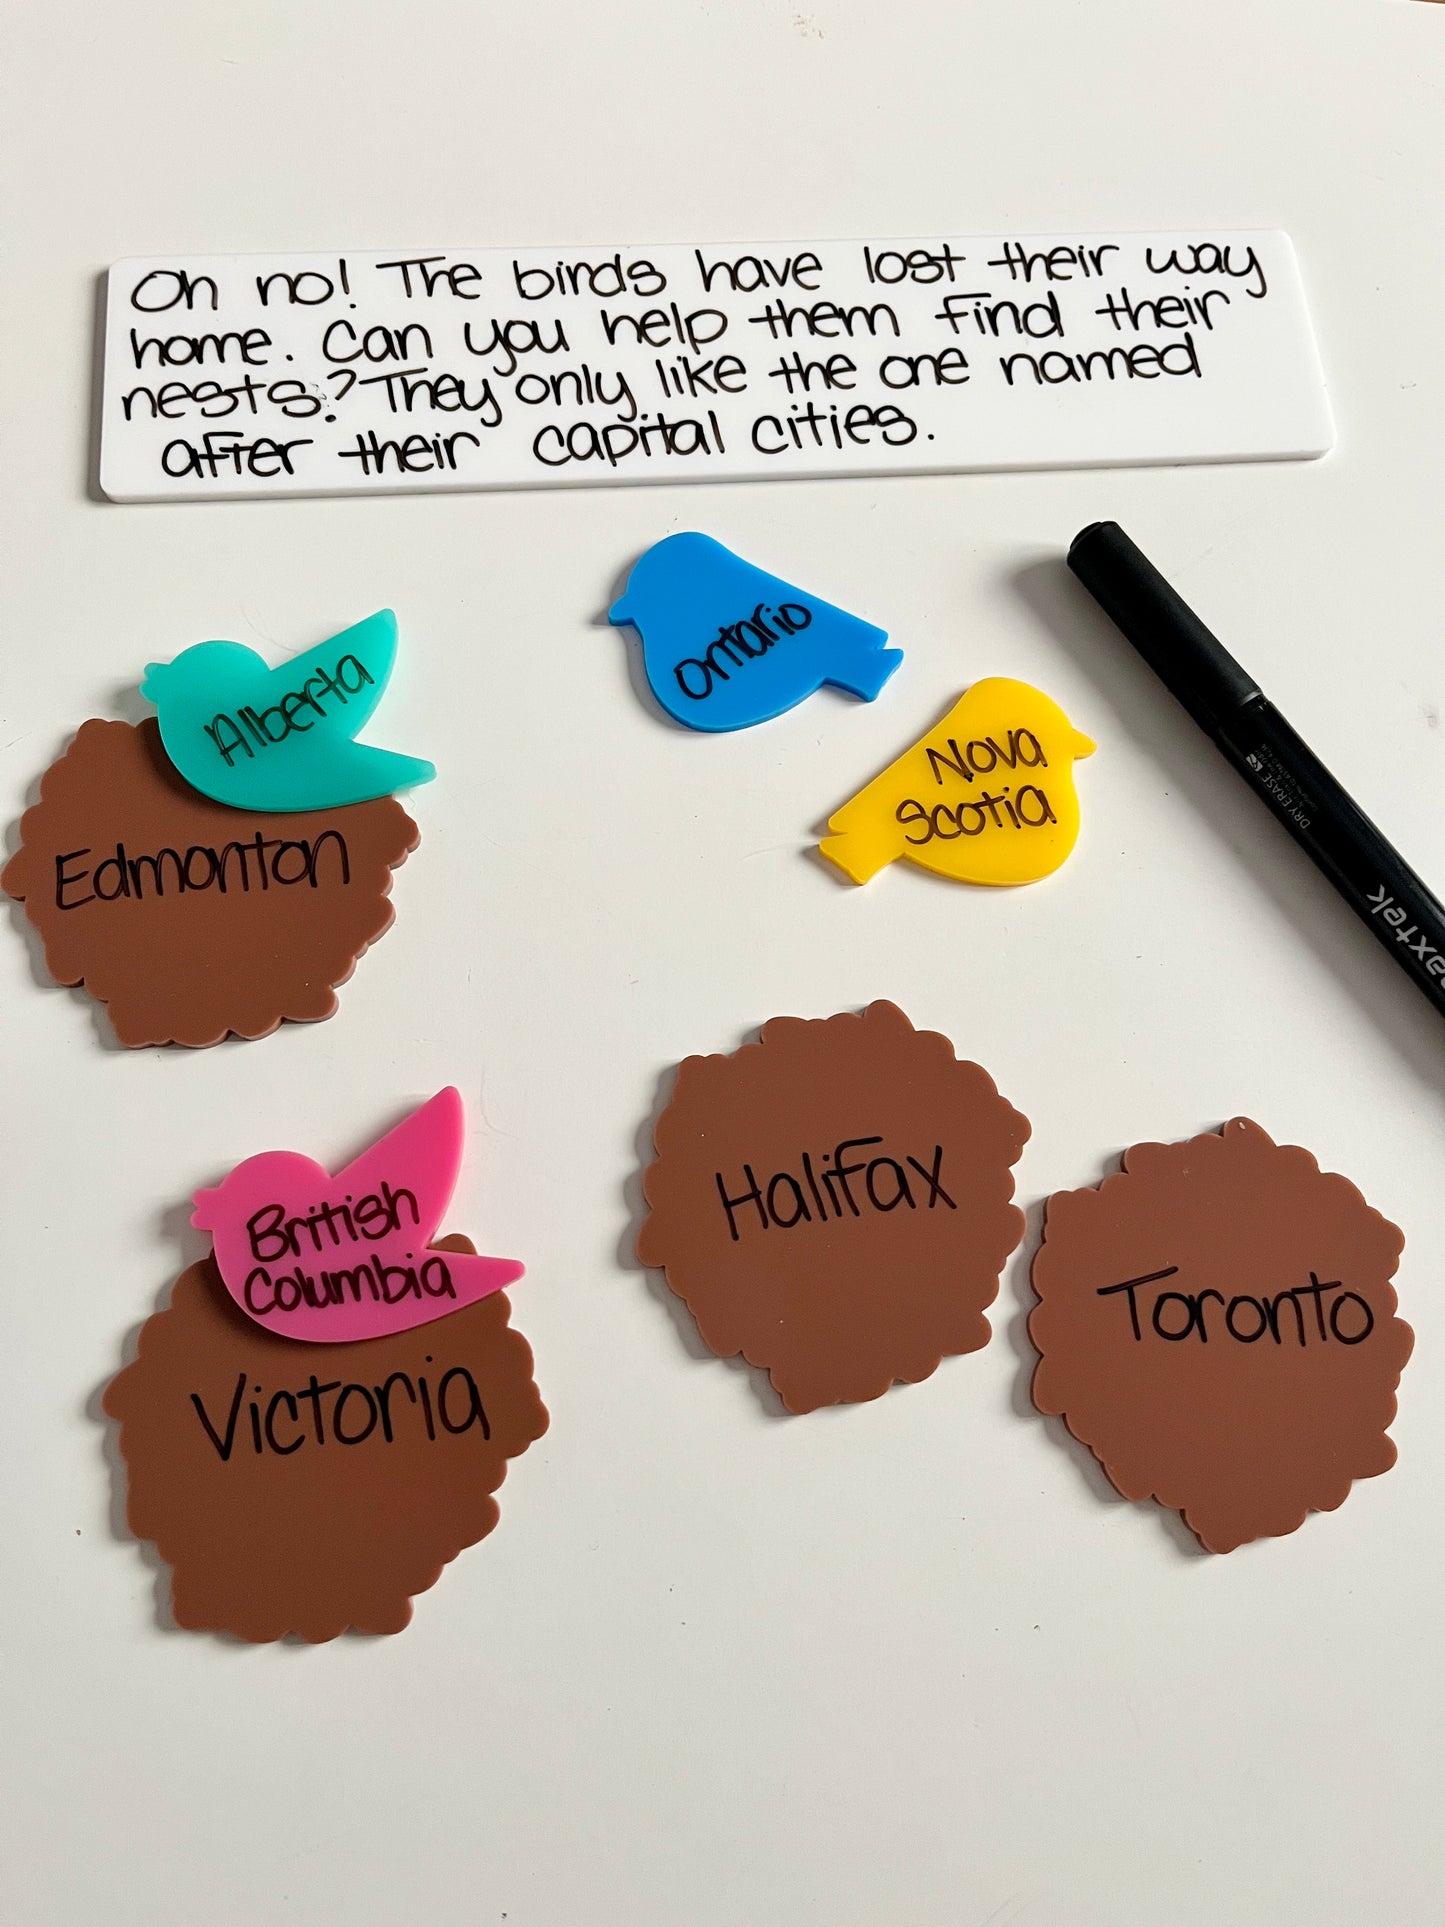 Oh no! The birds have lost their way
home. Can you help them find their
nests? They only like the one named
after their capital cities.
Ontario
Alberta
Nova
Scotia
Edmonton
British
Columbia
Victoria
Halifax
Toronto
DRY ERASE